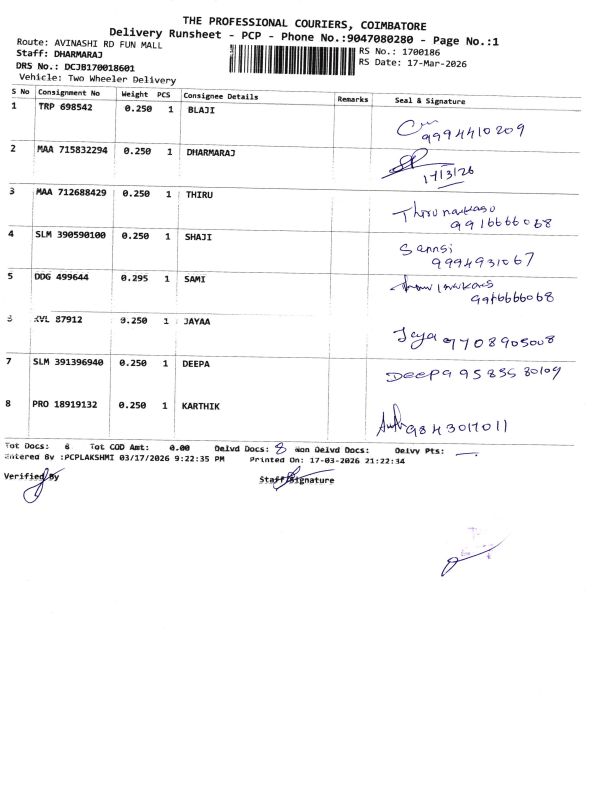 THE PROFESSIONAL COURIERS, COIMBATORE
Delivery Runsheet - PCP - Phone No.:9047080280 - Page No.:1
Route: AVINASHI RD FUN MALL
Staff: DHARMARAJ
DRS No.: DCJB170018601
Vehicle: Two Wheeler Delivery
RS No.: 1700186
RS Date: 17-Mar-2026
S No Consignment No Weight PCS Consignee Details Remarks Seal & Signature
1 TRP 698542 0.250 1 BLAJI
9994410209
2 MAA 715832294 0.250 1 DHARMARAJ
17/3/26
3 MAA 712688429 0.250 1 THIRU
9916666068
4 SLM 390590100 0.250 1 SHAJI
9994931067
5 DDG 499644 0.295 1 SAMI
9916666068
KVL 87912 0.250 1 JAYAA
Jaya 97708905008
7 SLM 391396940 0.250 1 DEEPA
DEEPA 95855 80109
8 PRO 18919132 0.250 1 KARTHIK
9843017011
Tot Docs: 8 Tot COD Amt: 0.00 Delvd Docs: 8 Non Delvd Docs: Delvy Pts: —
Entered By :PCPLAKSHMI 03/17/2026 9:22:35 PM Printed On: 17-03-2026 21:22:34
Verified By
Staff Signature